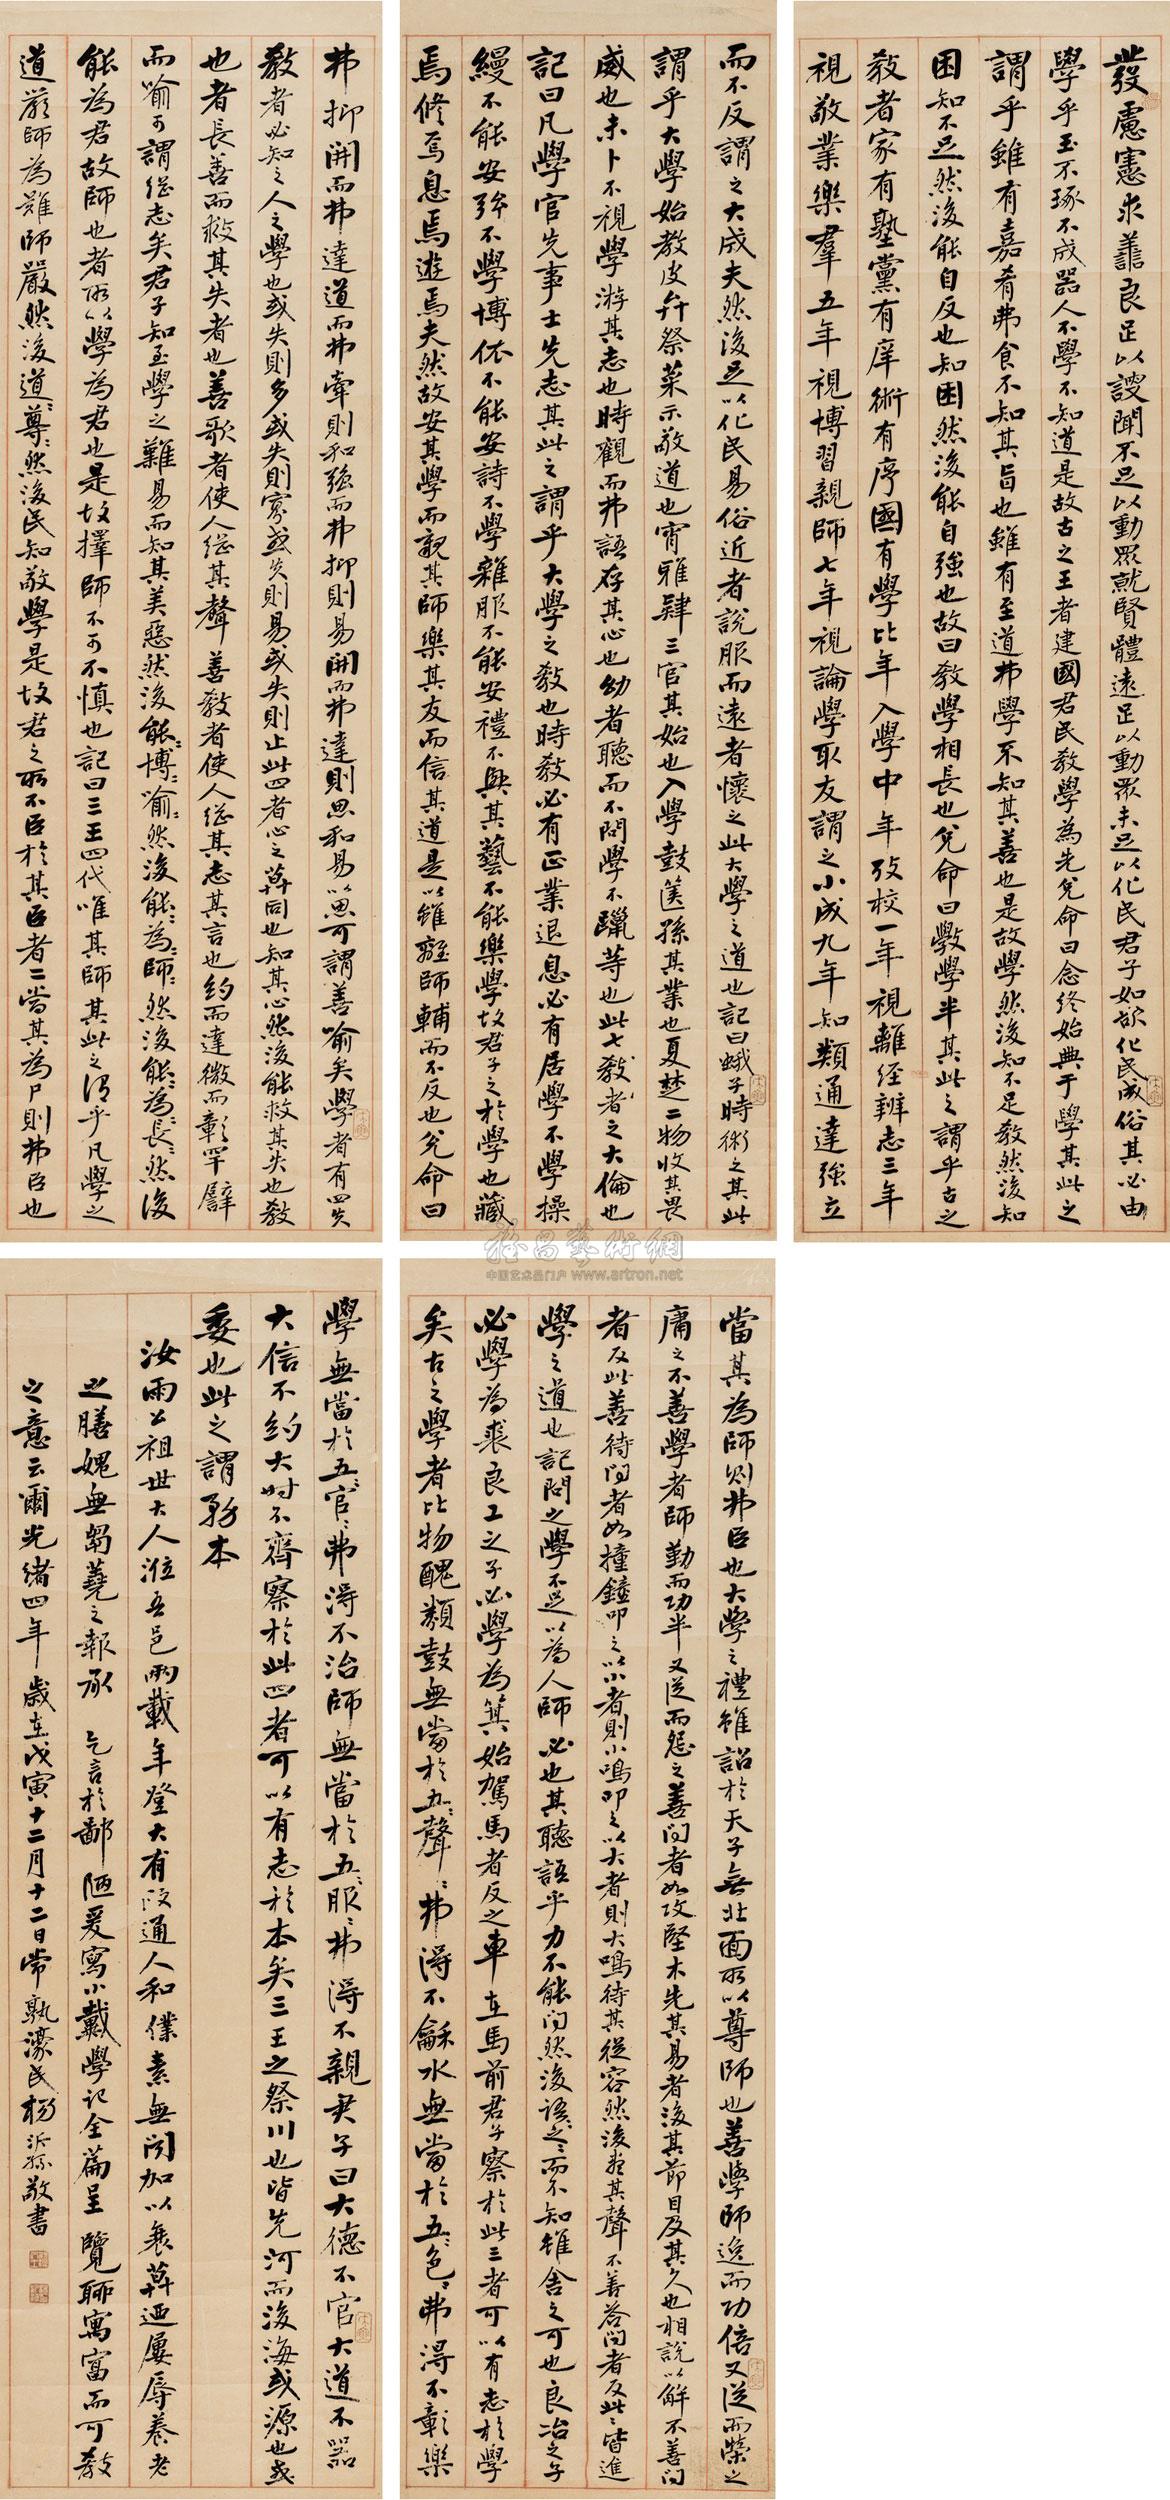 發慮憲求善良足以謏聞不足以動眾就賢體遠足以動眾未足以化民君子如欲化民成俗其必由
學乎玉不琢不成器人不學不知道是故古之王者建國君民教學為先兌命曰念終始典于學其此之
謂乎雖有嘉肴弗食不知其旨也雖有至道弗學不知其善也是故學然後知不足教然後知
困知不足然後能自反也知困然後能自強也故曰教學相長也兌命曰斆學半其此之謂乎古之
教者家有塾黨有庠術有序國有學比年入學中年攷校一年視離經辨志三年
視敬業樂羣五年視博習親師七年視論學取友謂之小成九年知類通達強立
而不反謂之大成夫然後足以化民易俗近者說服而遠者懷之此大學之道也記曰蛾子時術之其此
謂乎大學始教皮弁祭菜示敬道也宵雅肄三官其始也入學鼓篋孫其業也夏楚二物收其畏
威也未卜不視學游其志也時觀而弗語存其心也幼者聽而不問學不躐等也此七教者之大倫也
記曰凡學官先事士先志其此之謂乎大學之教也時教必有正業退息必有居學不學操
縵不能安弦不學博依不能安詩不學雜服不能安禮不興其藝不能樂學故君子之於學也藏
焉修焉息焉遊焉夫然故安其學而親其師樂其友而信其道是以雖離師輔而不反也兌命曰
弗抑開而弗達道而弗牽則和強而弗抑則易開而弗達則思和易以思可謂善喻矣學者有四失
教者必知之人之學也或失則多或失則寡或失則易或失則止此四者心之莫同也知其心然後能救其失也教
也者長善而救其失者也善歌者使人繼其聲善教者使人繼其志其言也約而達微而彰罕譬
而喻可謂繼志矣君子知至學之難易而知其美惡然後能博喻然後能為師然後能為長然後
能為君故師也者所以學為君也是故擇師不可不慎也記曰三王四代唯其師其此之謂乎凡學之
道嚴師為難師嚴然後道尊然後民知敬學是故君之所不臣於其臣者二當其為尸則弗臣也
當其為師則弗臣也大學之禮雖詔於天子無北面所以尊師也善學師逸而功倍又從而榮之
庸之不善學者師勤而功半又從而怨之善問者如攻堅木先其易者後其節目及其久也相說以解不善問
者反此善待問者如撞鐘叩之以小者則小鳴叩之以大者則大鳴待其從容然後盡其聲不善答問者反此皆進
學之道也記問之學不足以為人師必也其聽語乎力不能問然後語之而不知雖舍之可也良冶之子
必學為裘良工之子必學為箕始駕馬者反之車在馬前君子察於此三者可以有志於學
矣古之學者比物醜類鼓無當於五聲弗得不龢水無當於五色弗得不彰
學無當於五官弗得不治師無當於五服弗得不親君子曰大德不官大道不器
大信不約大時不齊察於此四者可以有志於本矣三王之祭川也皆先河而後海或源也或
委也此之謂務本
汝雨公祖世大人涖吾邑兩載年登大有政通人和僕素無聞加以衰屢辱養老
之膳媿無芻蕘之報承 乞言於鄙陋爰寫小戴學記全篇呈 覽聊寓富而可教
之意云爾光緒四年歲在戊寅十二月十二日常熟濠民楊沂孫敬書
中国艺术品门户 www.artron.net